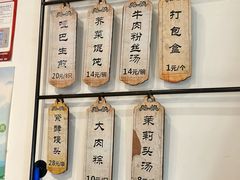 哑巴生煎
20元/
荠菜馄饨
14元/碗
牛肉粉丝汤
14元/碗
打包盒
1元/个
紧酵馒头
28元/
大肉粽
10元
茉莉头汤